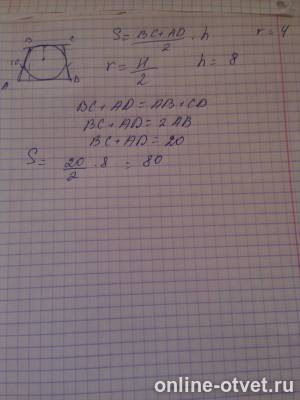 B C
10
A D
S = BC + AD / 2 · h r = 4
r = H / 2 h = 8
BC + AD = AB + CD
BC + AD = 2AB
BC + AD = 20
S = 20 / 2 · 8 = 80
online-otvet.ru